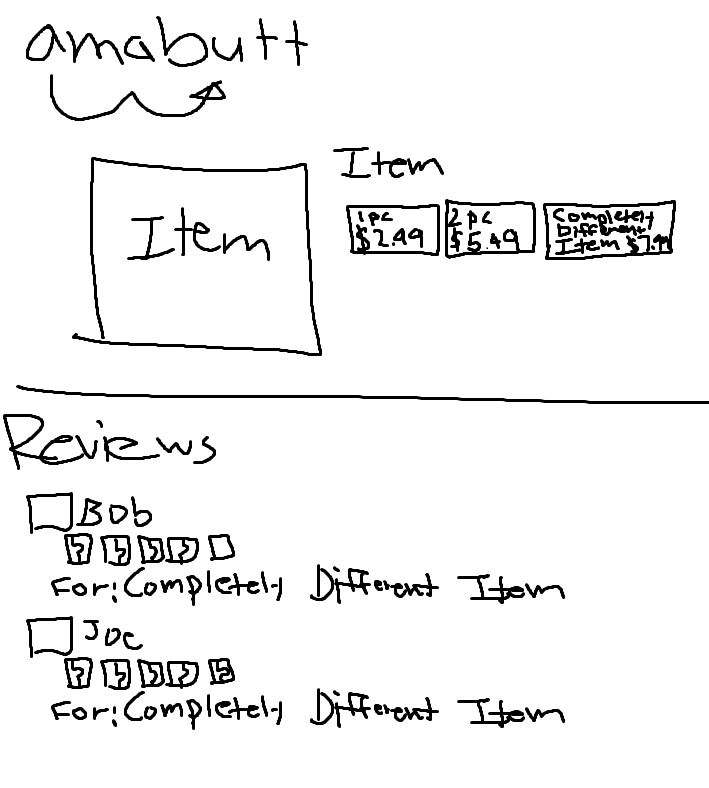 amabutt
Item
Item
1pc
$2.49
2 pc
$5.49
Completely
Different
Item $7.99
Reviews
Bob
For: Completely Different Item
Joe
For: Completely Different Item